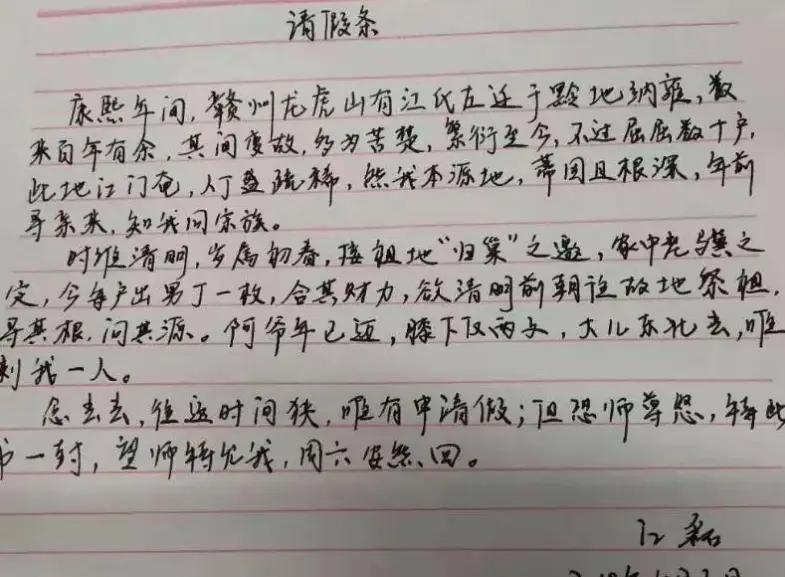 请假条
康熙年间,赣州龙虎山有江氏左迁于黔地纳雍,数
来百年有余,其间变故,多为苦楚,繁衍至今,不过屈屈数十户,
此地江门奄,人丁益疏稀,然我本源地,蒂固且根深,年前
寻亲来,知我同宗族。
时维清明,岁属初春,接祖地“归巢”之邀,家中老
定,今每户出男丁一枚,合其财力,欲清明前朝谊故地祭祖,
寻其根,问其源。阿爷年已迈,膝下仅两子,大儿东北去,唯
剩我一人。
念去去,往返时间狭,唯有申请假;但恐师尊怒,特此
书一封,望师特允我,周六安然回。
江磊